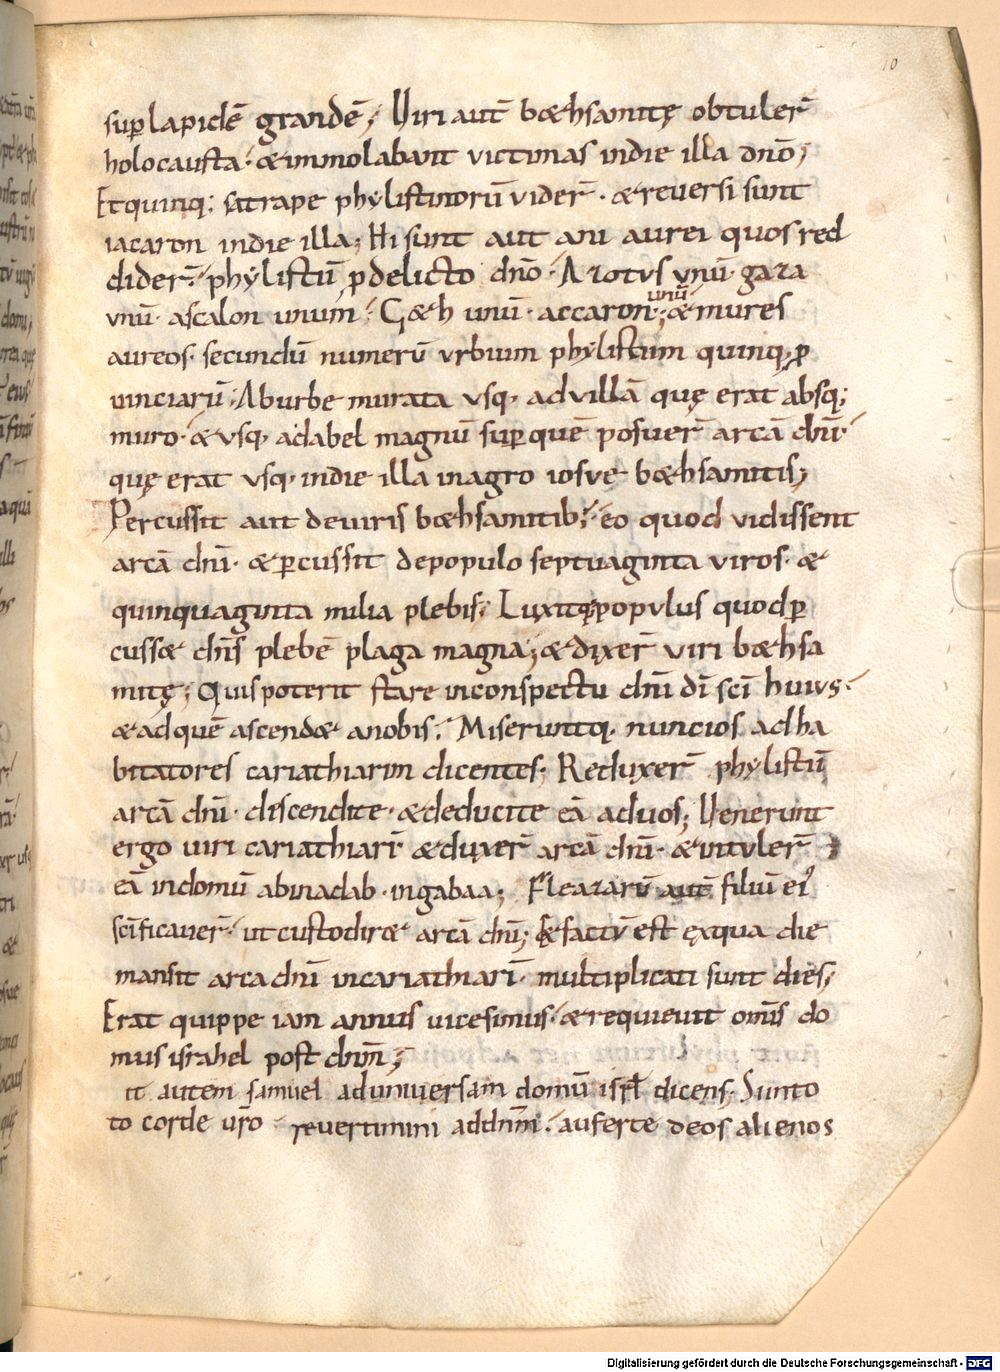 10
sup lapidē grandē; Viri aut̄ bethsamitę obtuler̄
holocausta· & immolabant victimas indie illa dn̄o;
Et quinq; satrape phylistinorū vider̄· & reuersi sunt
iacaron indie illa; Hi sunt aut ani aurei quos red
dider̄· phylistiī p delicto dn̄o· Azotus vnū· gaza
vnū· ascalon unum· G&h unū· accaron unū; & mures
aureos· secundū numerū vrbium phylistium quinq; p
uinciarū; Ab urbe murata vsq; ad villā quę erat absq;
muro· & vsq; adabel magnū sup quē posuer̄ arcā dn̄i·
quę erat vsq; indie illa inagro iosve b&hsamitis;
Percussit aut deuiris b&hsamitib;· eo quod vidissent
arcā dn̄i· & pcussit depopulo septuaginta viros· &
quinquaginta milia plebis; Luxitq; populus quod p
cuss& dn̄s plebē plaga magna; & dixer̄ viri b&hsa
mitę; Quis poterit stare inconspectu dn̄i dī scī huius·
& ad quē ascend& anobis; Miseruntq; nuncios ad ha
bitatores cariathiarim dicentes; Reduxer̄ phylistiī
arcā dn̄i· discendite· & deducite eā aduos; Venerunt
ergo uiri cariathiarī & duxer̄ arcā dn̄i· & intuler̄
eā indomū abinadab· ingabaa; Eleazarū aut̄ filiū ei'
scīficauer̄· ut custodir& arcā dn̄i; & factū est exqua die
mansit arca dn̄i incariathiarī· multiplicati sunt dies;
Erat quippe iam annus uicesimus· & requieuit om̄is do
mus israhel post dn̄m;
it autem samuel ad universam domū isrl̄ dicens· Si in to
to corde vr̄o reuertimini ad dn̄m· auferte deos alienos
Digitalisierung gefördert durch die Deutsche Forschungsgemeinschaft - DFG